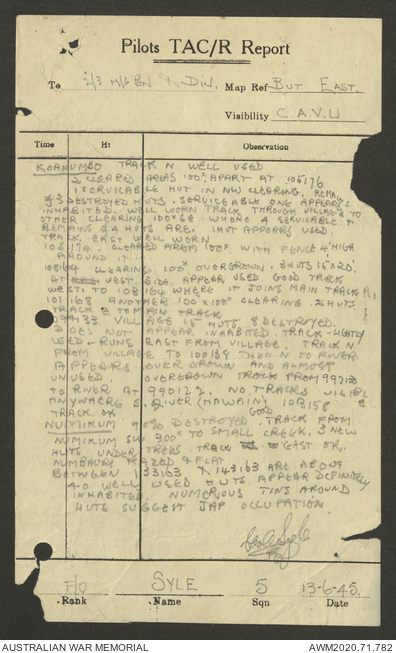 Pilots TAC/R Report
To 2/3 M/G BN & DIV. Map Ref BUT EAST.
Visibility C.A.V.U
Time Ht Observation
KOANUMBO TRACK N WELL USED
2 CLEARED AREAS 100x APART AT 105176
1 SERVICABLE HUT IN NW CLEARING. REMAINS
3 DESTROYED HUTS. SERVICABLE ONE APPEARS
INHABITED. WELL WORN TRACK THROUGH VILLAGE TO
OTHER CLEARING 100x60 WHERE 4 SERVICABLE &
REMAINS OF 4 HUTS ARE. 1 HUT APPEARS USED.
TRACK EAST WELL WORN
105174. CLEARED AREA 100x WITH FENCE 4' HIGH
AROUND IT.
105164 CLEARING 100x OVERGROWN. 3 HUTS 15'x20'
AT WEST. SIDE APPEAR USED. GOOD TRACK
WEST TO 108164 WHERE IT JOINS MAIN TRACK
101168 ANOTHER 100x100x CLEARING. 2 HUTS
TRACK TO MAIN TRACK
099133 VILLAGE 15 HUTS 8 DESTROYED.
DOES NOT APPEAR INHABITED. TRACK - LIGHTLY
USED - RUNS EAST FROM VILLAGE. TRACK N
FROM VILLAGE TO 100139 THEN N TO RIVER
APPEARS OVER GROWN AND ALMOST
UNUSED. OVERGROWN TRACK FROM 997120
TO RIVER AT 990122. NO TRACKS VISIBLE
ANYWHERE S RIVER (HAWAIN) 103158
TRACK OK GOOD
NUMIKUM 90% DESTROYED. TRACK FROM
NUMIKUM SW 300x TO SMALL CREEK. 3 NEW
HUTS UNDER TREES TRACK EAST OK.
NUMBAURI RAZED & FLAT
BETWEEN 133163 & 143163 ARE ABOVE
40 WELL USED HUTS APPEAR DEFINITELY
INHABITED. NUMEROUS TINS AROUND
HUTS SUGGEST JAP OCCUPATION.
F/O SYLE 5 13-6-45.
Rank Name Sqn Date
AUSTRALIAN WAR MEMORIAL AWM2020.71.782